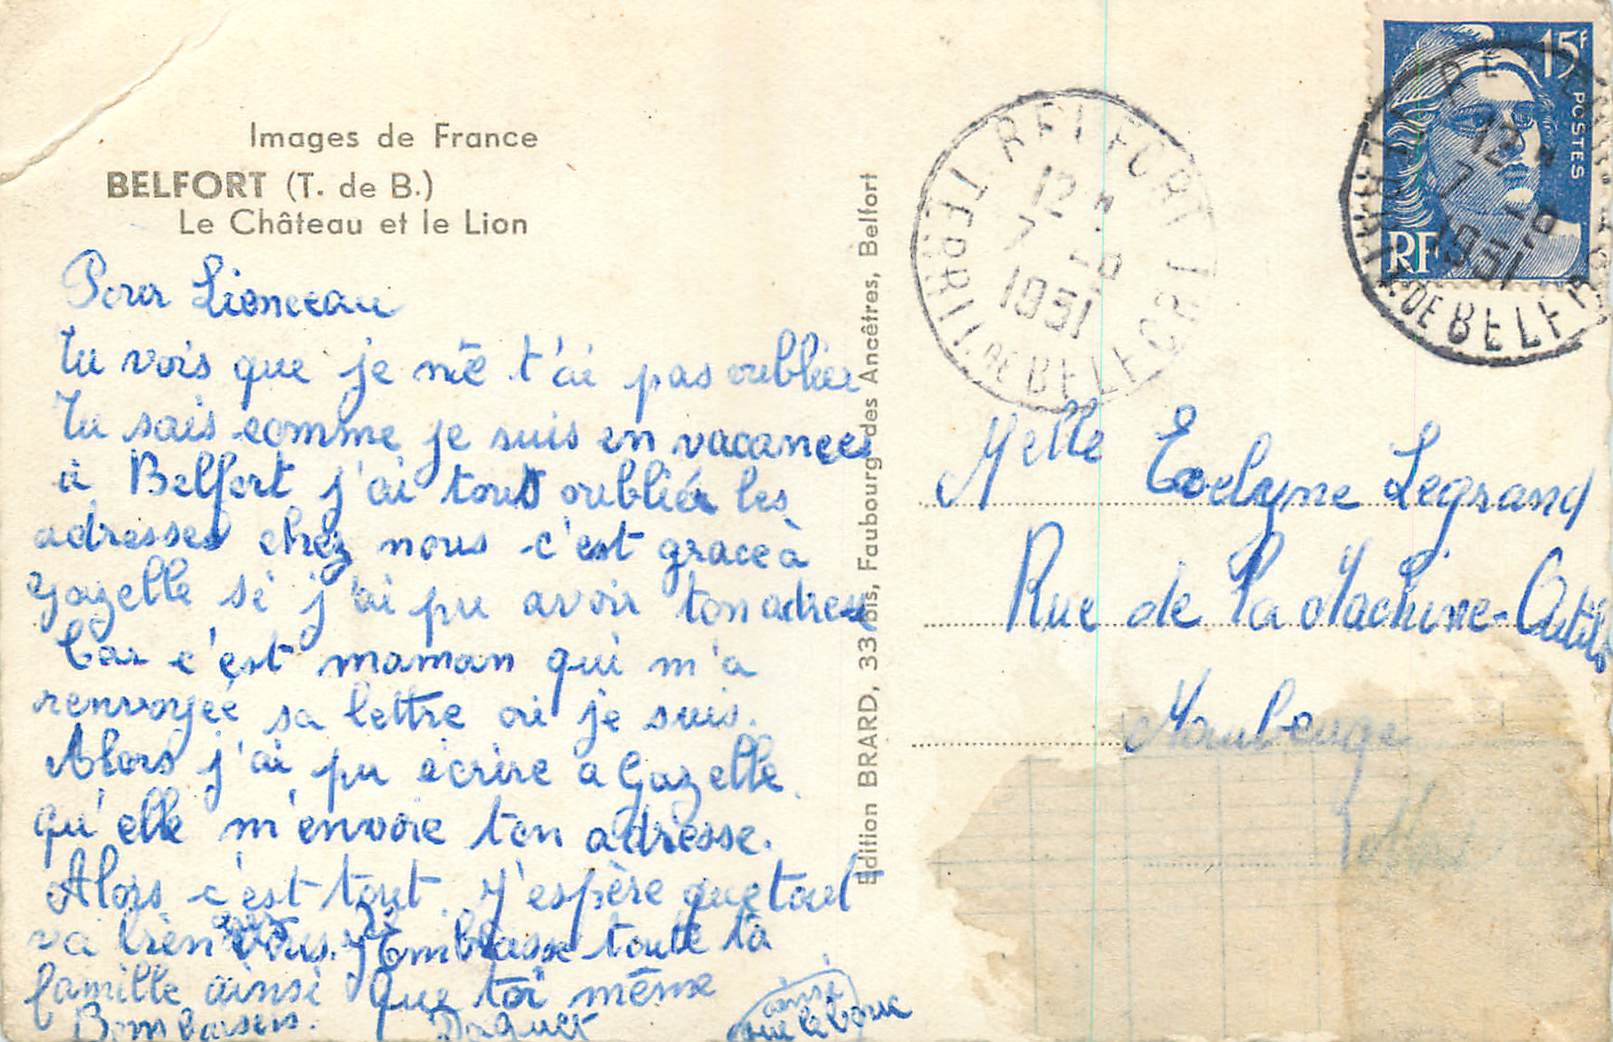 Images de France
BELFORT (T. de B.)
Le Château et le Lion
Pour Lionceau
Tu vois que je ne t'ai pas oublier
Tu sais comme je suis en vacances
à Belfort j'ai tout oubliér les
adresses chez nous c'est grace à
Gazelle si j'ai pu avoir ton adresse
Car c'est maman qui m'a
renvoyée sa lettre où je suis.
Alors j'ai pu écrire a Gazelle
qu'elle m'envoie ton adresse.
Alors c'est tout. J'espère que tout
va bien vous. J'Embrasse toute ta
famille ainsi que toi même
Bons baisers.
Edition BRARD, 33 bis, Faubourg des Ancêtres, Belfort
BELFORT
TERRIT. DE BELFORT
12 H
7 -9
1951
15F
POSTES
RF
BELFORT
TERRIT. DE BELFORT
12 H
7 -9
1951
Melle Evelyne Legrand
Rue de la Machine-Outils
Maubeuge